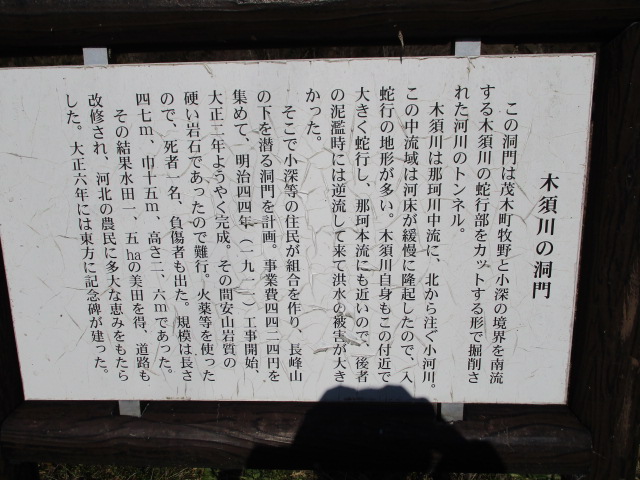 木須川の洞門
この洞門は茂木町牧野と小深の境界を南流
する木須川の蛇行部をカットする形で掘削さ
れた河川のトンネル。
木須川は那珂川中流に、北から注ぐ小河川。
この中流域は河床が緩慢に隆起したので、入
蛇行の地形が多い。木須川自身もこの付近で
大きく蛇行し、那珂本流にも近いので、後者
の泥濫時には逆流して来て洪水の被害が大き
かった。
そこで小深等の住民が組合を作り、長峰山
の下を潜る洞門を計画。事業費四四二四円を
集めて、明治四四年(一九一一)工事開始、
大正二年ようやく完成。その間安山岩質の
硬い岩石であったので難行。火薬等を使った
ので、死者一名、負傷者も出た。規模は長さ
四七m、巾十五m、高さ二、六mであった。
その結果水田一、五haの美田を得、道路も
改修され、河北の農民に多大な恵みをもたら
した。大正六年には東方に記念碑が建った。